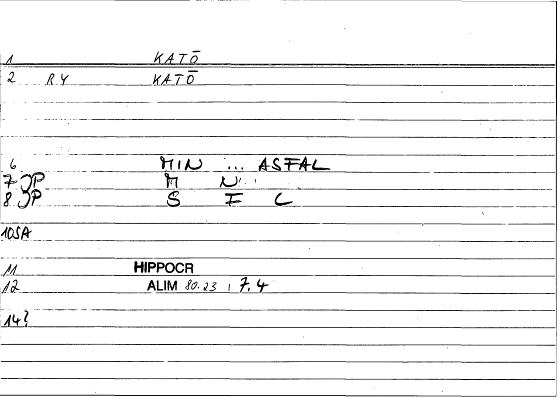 1 KATŌ
2 RY KATŌ
6 MIN ... ASFAL
7 JP M N
8 JP S F C
10SA
11 HIPPOCR
12 ALIM 80.23 , 7.4
14?